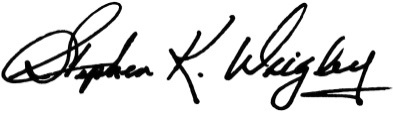 Stephen K. Wrigley